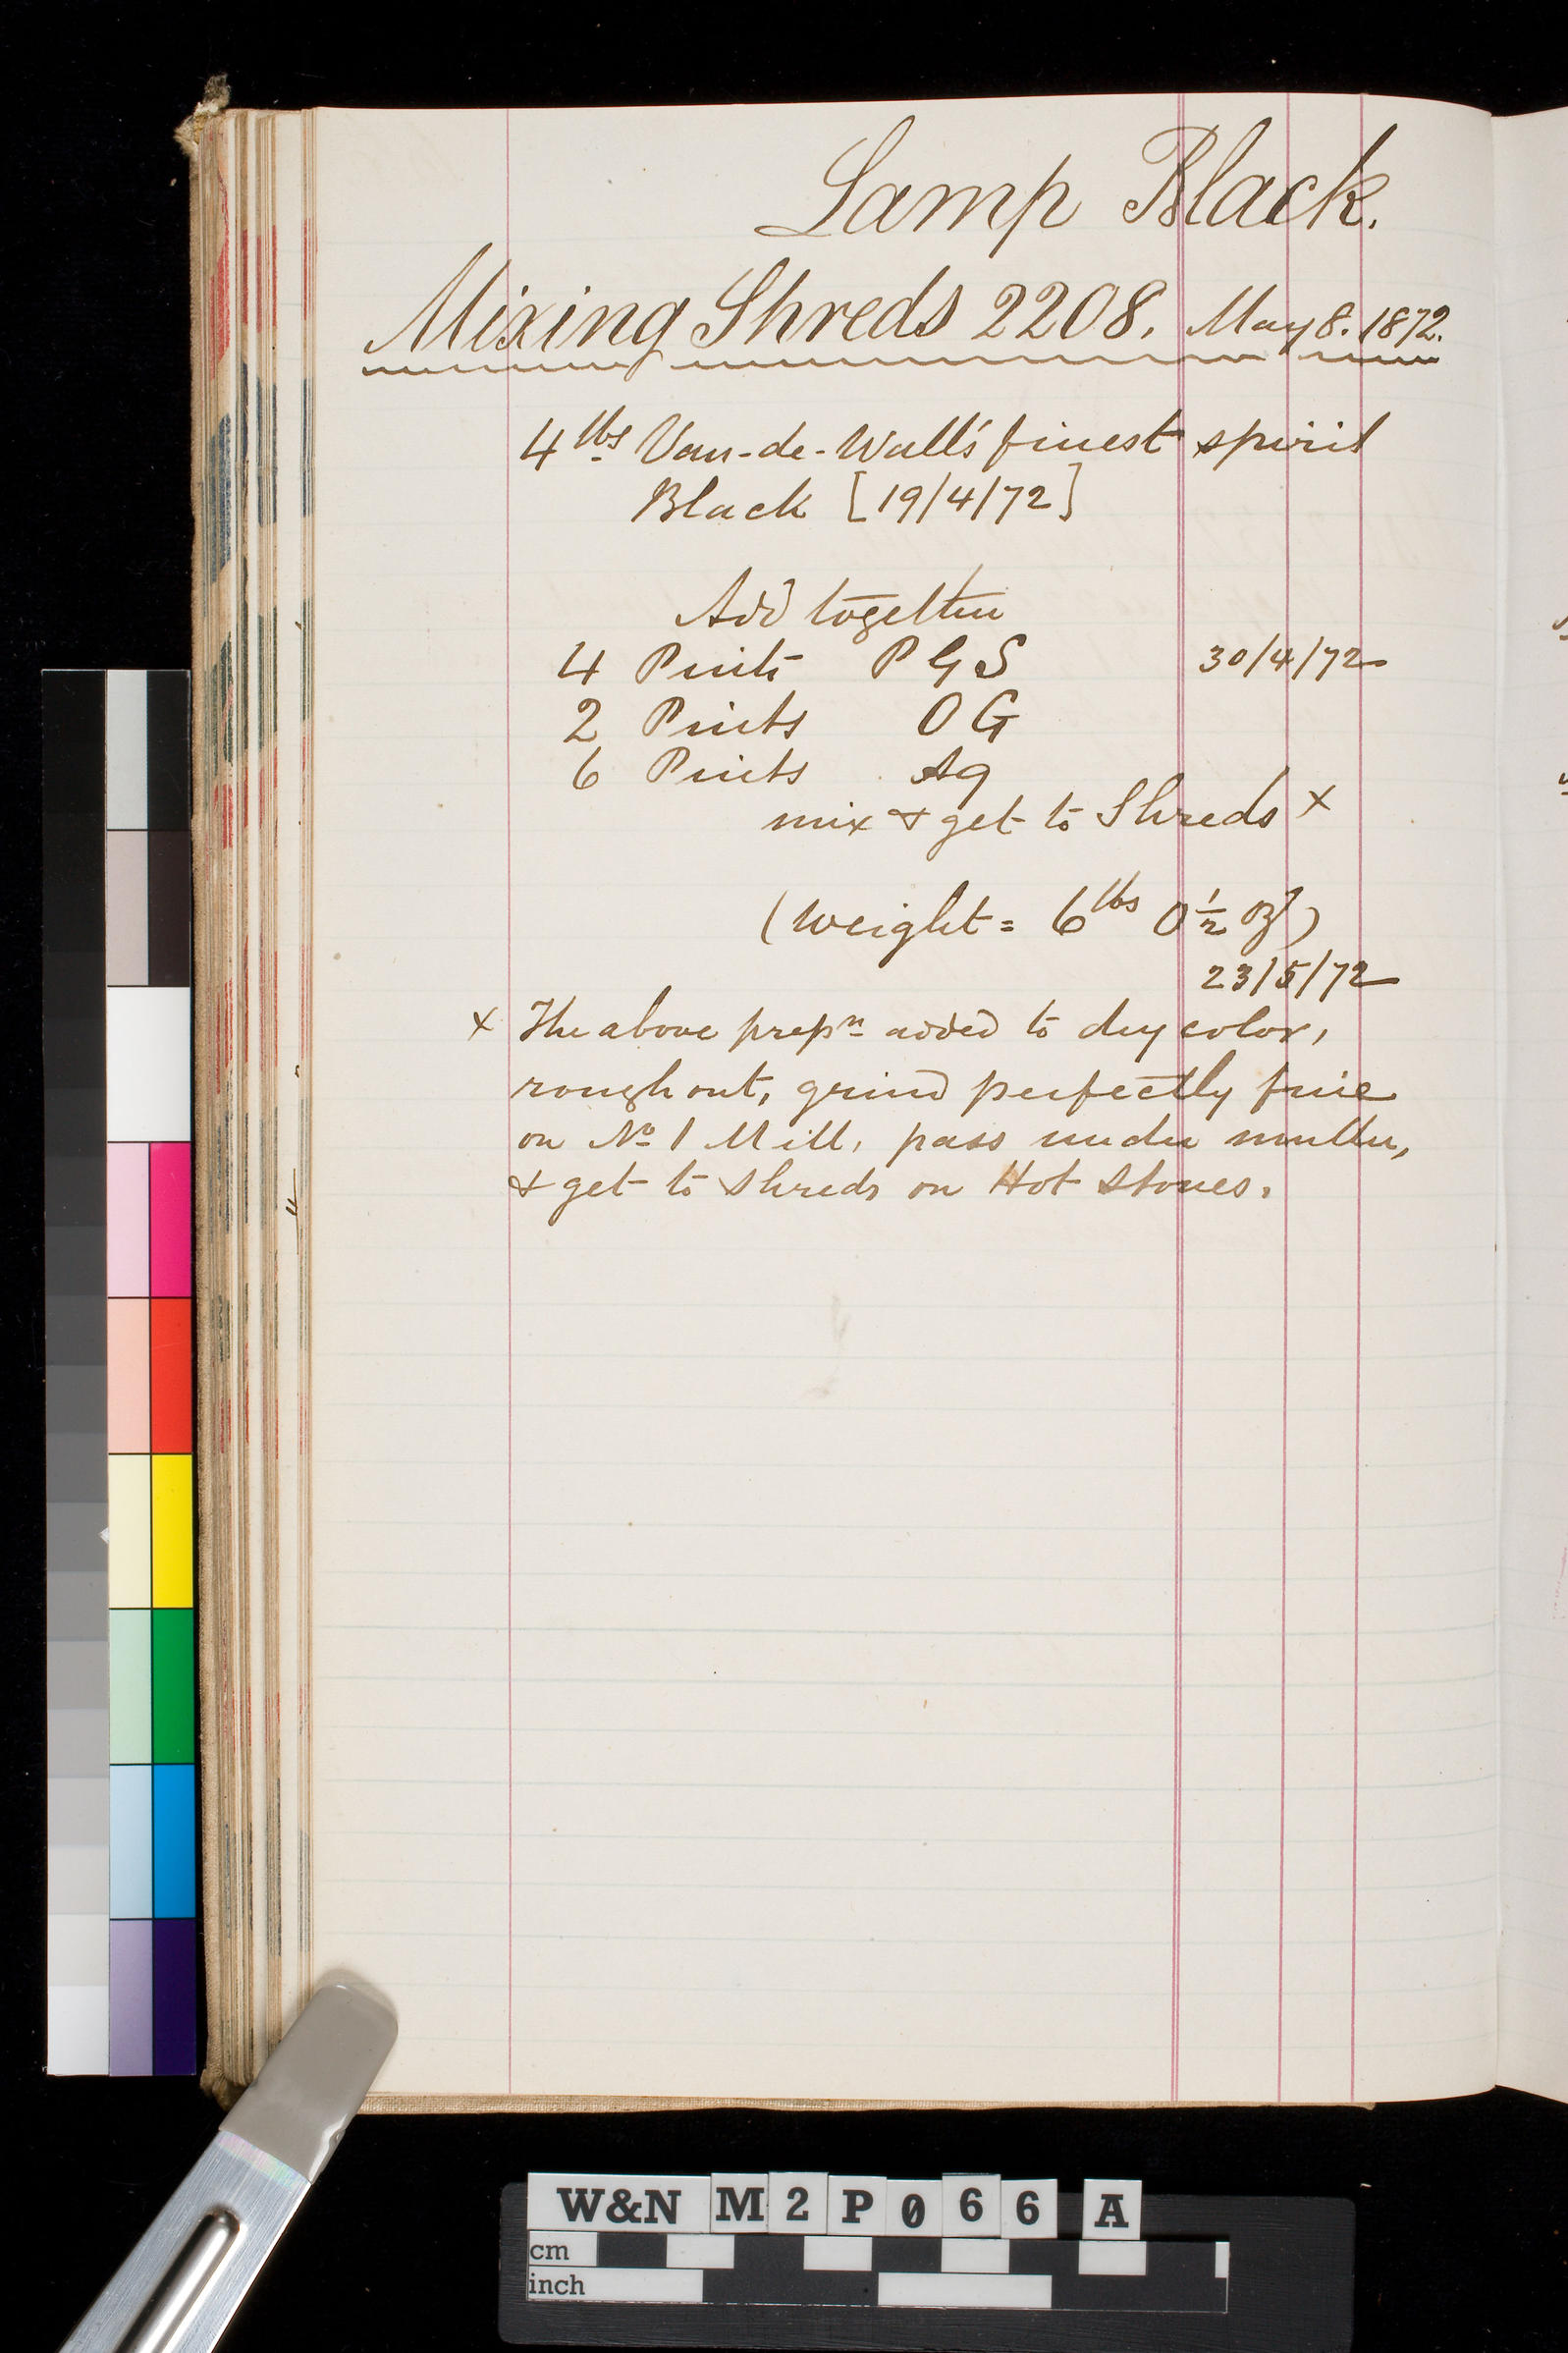 Lamp Black.
Mixing Shreds 2208. May 8. 1872.
4 lbs Van-de-Wall's finest spirit
Black [19/4/72]
Add together
4 Pints P G S 30/4/72
2 Pints O G
6 Pints Aq
mix & get to Shreds x
(Weight = 6 lbs 0 1/2 oz)
23/5/72
x The above prepn added to dry color,
rough out, grind perfectly fine
on No 1 Mill, pass under muller,
& get to shreds on Hot Stones.
W&N M2P066 A
cm
inch